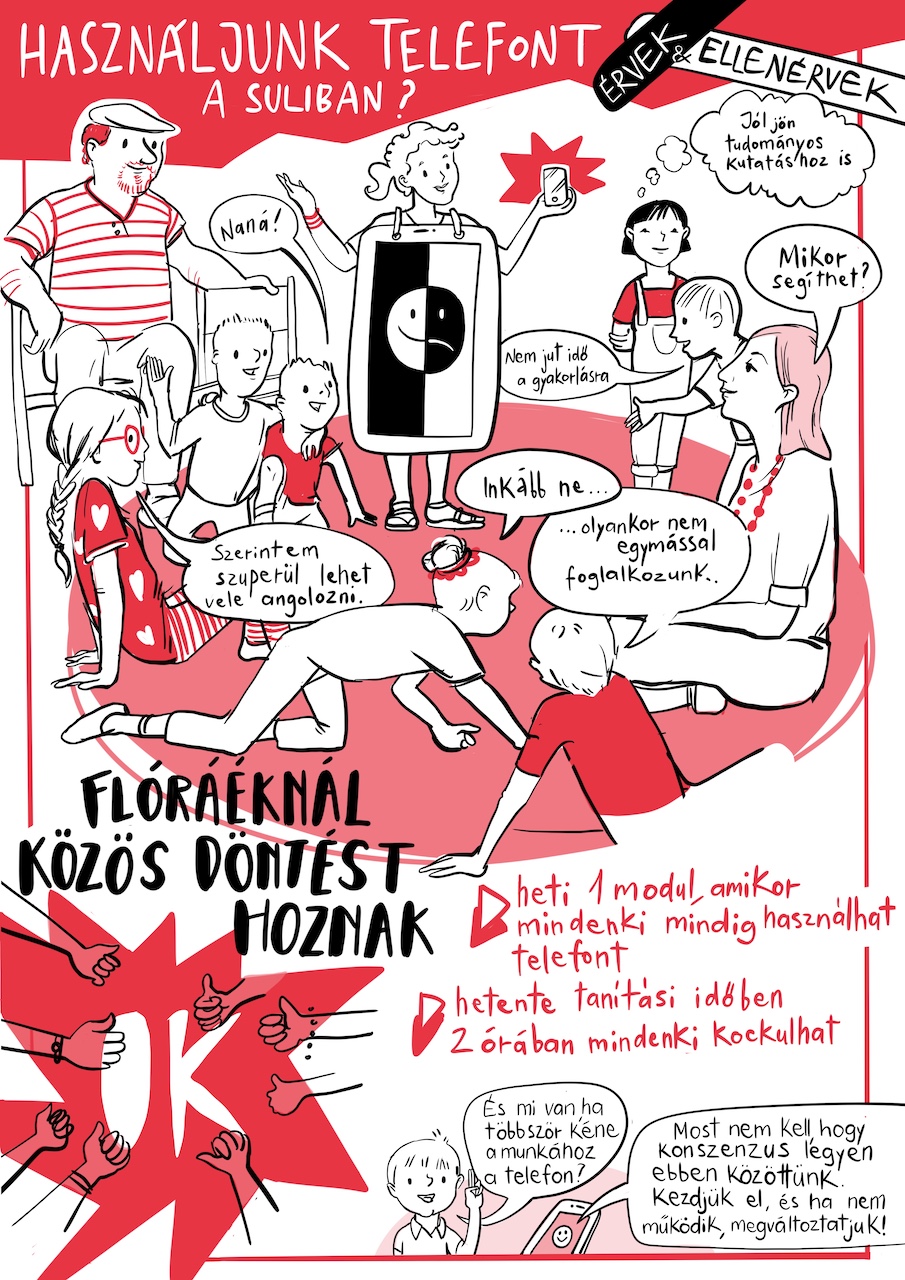 HASZNÁLJUNK TELEFONT
A SULIBAN?
ÉRVEK
& ELLENÉRVEK
Jól jön
tudományos
kutatáshoz is
Naná!
Mikor
segíthet?
Nem jut idő
a gyakorlásra
Inkább ne...
...olyankor nem
egymással
foglalkozunk..
Szerintem
szuperül lehet
vele angolozni.
FLÓRÁÉKNÁL
KÖZÖS DÖNTÉST
HOZNAK
heti 1 modul, amikor
mindenki mindig használhat
telefont
hetente tanítási időben
2 órában mindenki kockulhat
OK
És mi van ha
többször kéne
a munkához
a telefon?
Most nem kell hogy
konszenzus legyen
ebben közöttünk.
Kezdjük el, és ha nem
működik, megváltoztatjuk!